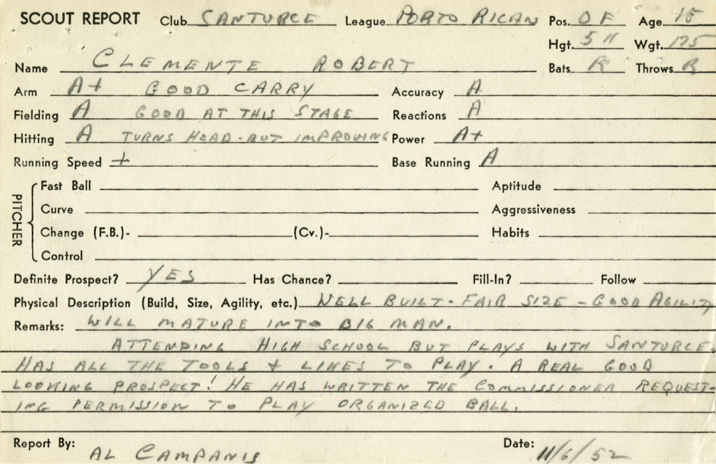 SCOUT REPORT Club SANTURCE League PORTO RICAN Pos. OF Age 18
Hgt. 5 11 Wgt. 175
Name CLEMENTE ROBERT Bats R Throws R
Arm A+ GOOD CARRY Accuracy A
Fielding A GOOD AT THIS STAGE Reactions A
Hitting A TURNS HEAD-BUT IMPROVING Power A+
Running Speed + Base Running A
PITCHER
Fast Ball Aptitude
Curve Aggressiveness
Change (F.B.)- (Cv.)- Habits
Control
Definite Prospect? YES Has Chance? Fill-In? Follow
Physical Description (Build, Size, Agility, etc.) WELL BUILT-FAIR SIZE-GOOD AGILITY
Remarks: WILL MATURE INTO BIG MAN.
ATTENDING HIGH SCHOOL BUT PLAYS WITH SANTURCE.
HAS ALL THE TOOLS + LIKES TO PLAY. A REAL GOOD
LOOKING PROSPECT! HE HAS WRITTEN THE COMMISSIONER REQUEST-
ING PERMISSION TO PLAY ORGANIZED BALL.
Report By: AL CAMPANIS Date: 11/6/52